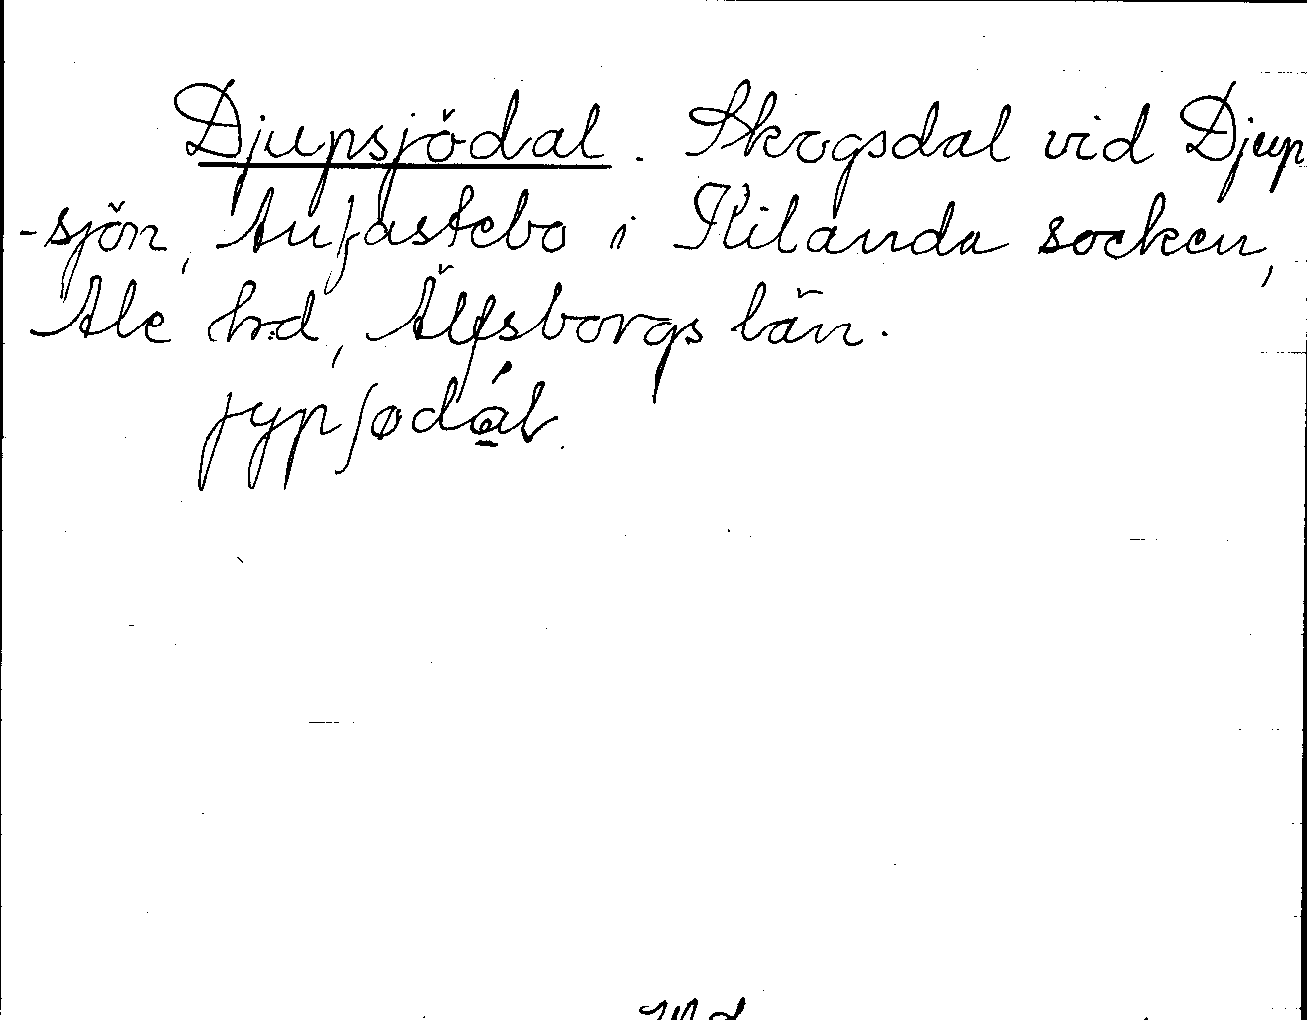 Djupsjödal. Skogsdal vid Djup
-sjön, Anfastebo i Kilanda socken,
Ale hrd, Älfsborgs län.
jypʃødál